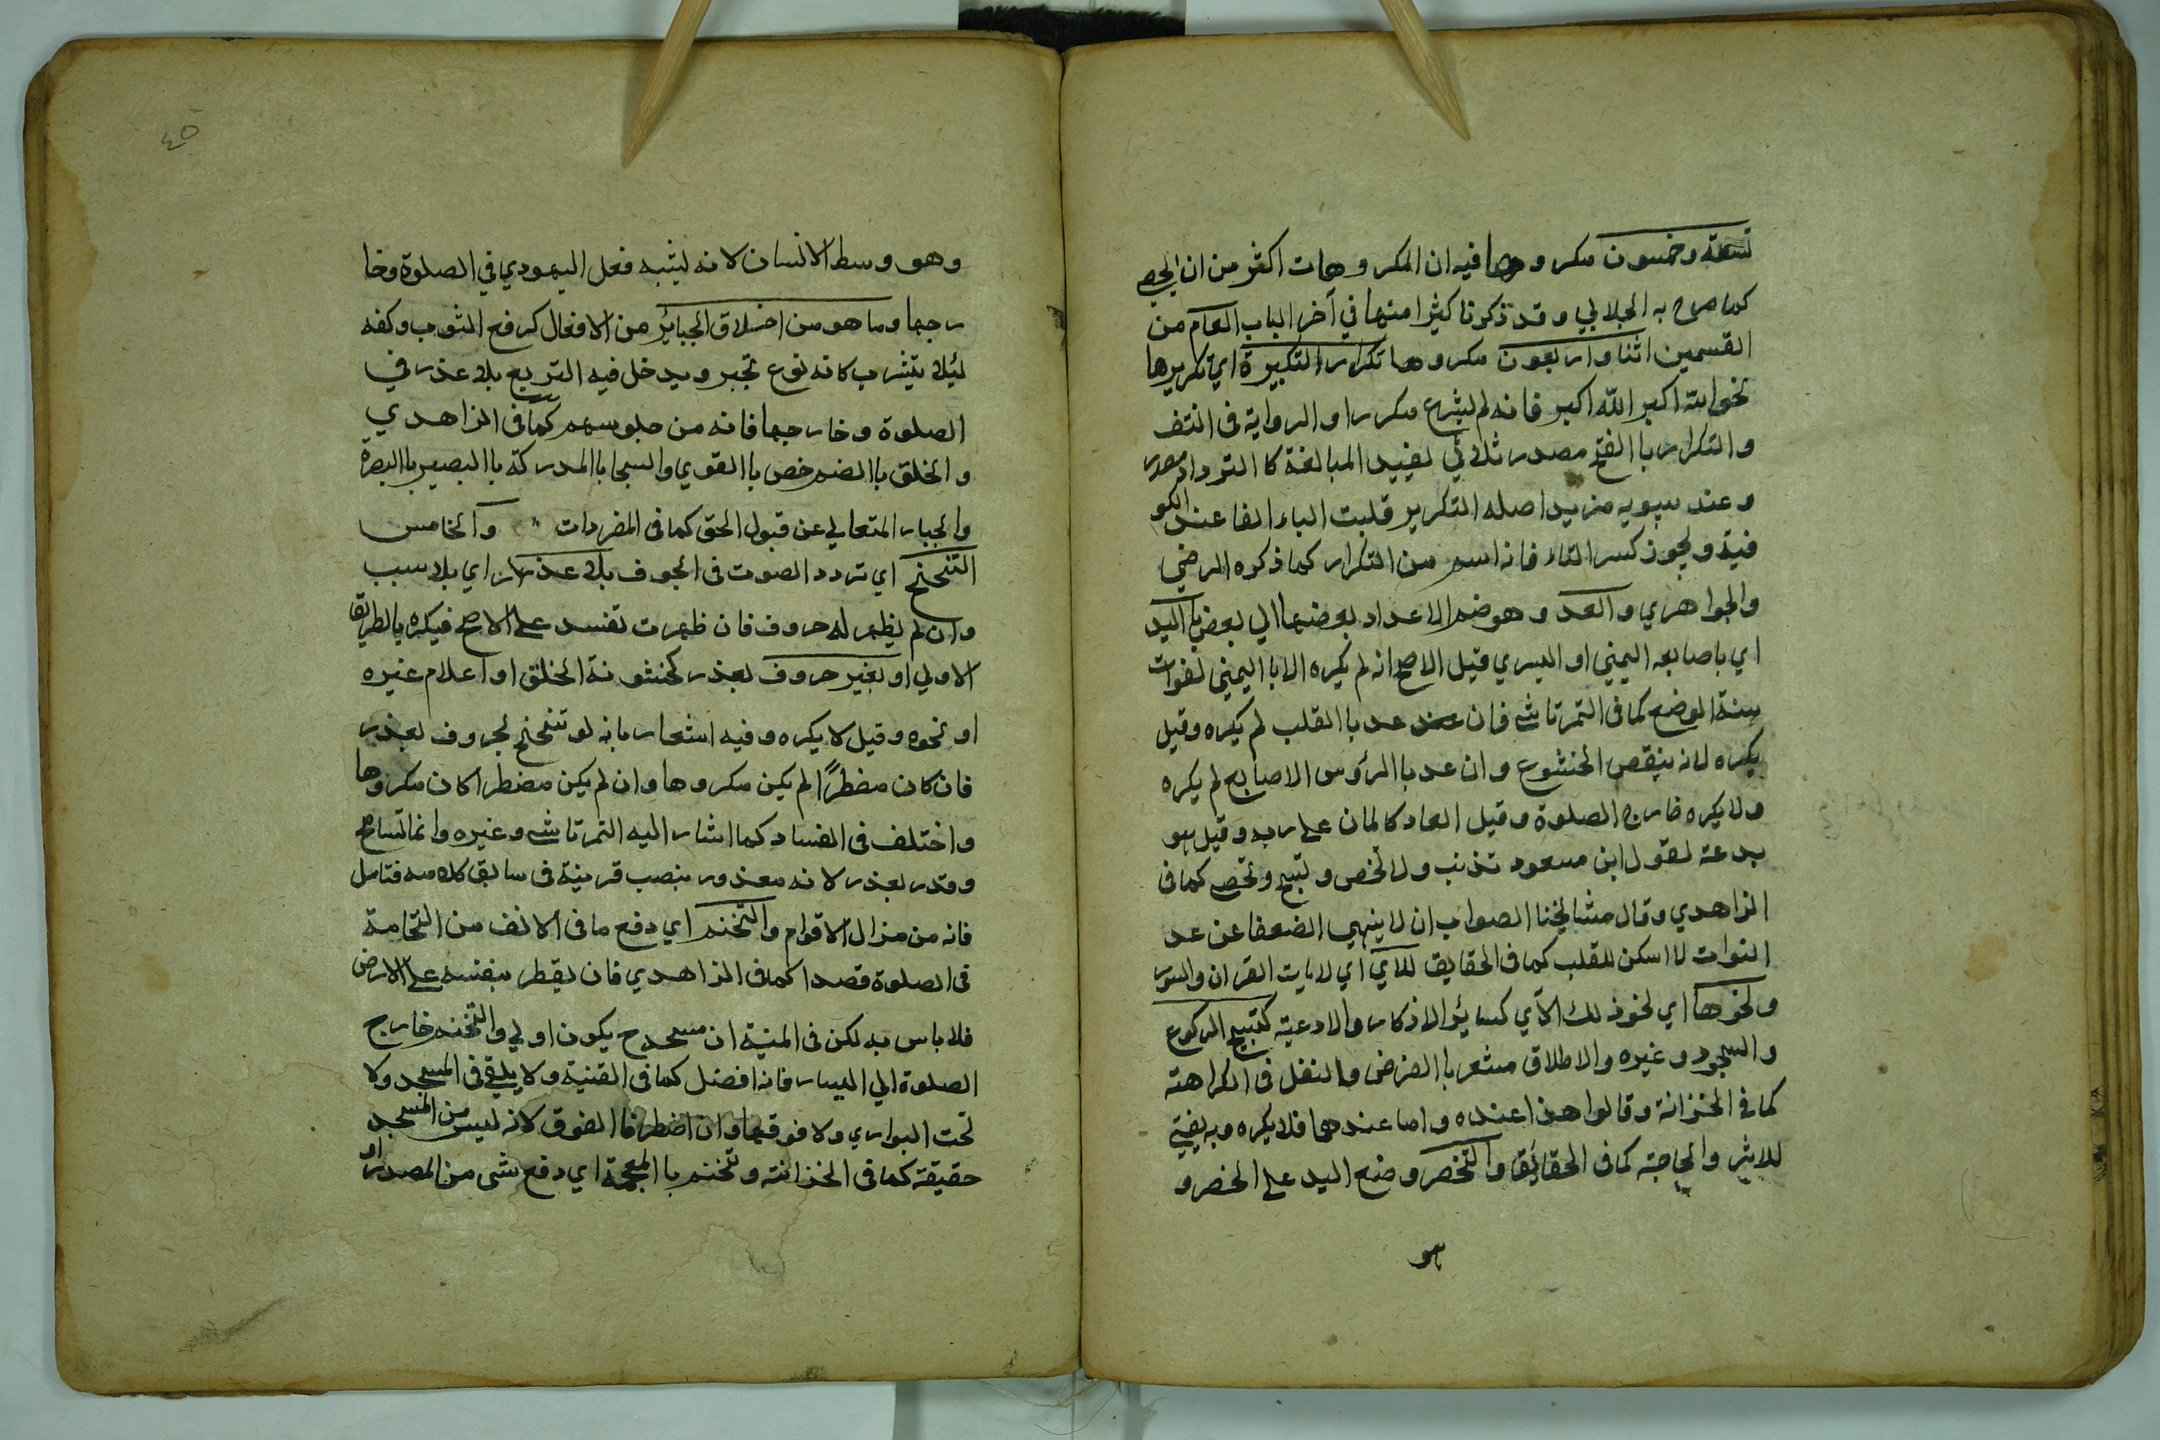 تسعة وخمسون مكروها فيه ان المكروهات اكثر من ان يحصي
كما صرح به الجلابي وقد ذكرنا كثيرا منها في آخر الباب العام من
القسمين اثنا واربعون مكروها تكرار التكبيرة اي تكريرها
نحو الله اكبر الله اكبر فانه لم يشرع مكررا والرواية فى النتف
والتكرار باالفتح مصدر ثلاثي يفيد المبالغة كا الترداد مصدر
وعند سيبويه مزيد اصله التكرير قلبت الياء الفا عند الكو
فية ويجوز كسر التاء فانه اسم من التكرار كما ذكره الرضي
والجواهري والعد وهو ضم الاعداد بعضها الي بعض باليد
اي باصابعه اليمني او اليسري قيل الاصح انه لم يكره الا باليمني لفوات
سنة الوضع كما فى التمرتاشي فان عد باالقلب لم يكره وقيل
يكره لانه ينقص الخشوع وان عد باالرؤس الاصابع لم يكره
ولا يكره خارج الصلوة وقيل العاد كالمان على ربه وقيل هو
بدعة لقول ابن مسعود تذنب ولا تحص وتسبح وتحصي كما فى
الزاهدي وقال مشايخنا الصواب ان لا ينهي الضعفا عن عد
النوات لا اسكن للقلب كما فى الحقايق للآي اي لايات القران والسور
ونحوها اي نحو ذلك الآي كسايئر الاذكار والادعية كتسبيح الركوع
والسجود وغيره والاطلاق مشعر باالفرض والنفل فى الكراهة
كما في الخزانة وقالوا هذا عنده واما عندهما فلا يكره وبه يفتي
للاثر والحاجة كما فى الحقايق والتخصر وضع اليد على الخصر و
هو
٤٥
وهو وسط الانسان لانه يشبه فعل اليهودي في الصلوة وخا
رجها وما هو من اخلاق الجبابئر من الافعال كرفع الثوب وكفه
لئلا يتثرب كانه نوع تجبر ويدخل فيه التربع بلا عذر في
الصلوة وخارجها فانه من جلوسهم كما فى الزاهدي
والخلق باالضم خص باالقوي والسجايا المدركة باالبصير باالبصرة
والجبار المتعالي عن قبول الحق كما فى المفردات والخامس
التنحنح اي تردد الصوت فى الجوف بلا عذر اي بلا سبب
وان لم يظهر له حروف فان ظهرت تفسد على الاصح فيكره بالطريق
الاولي او بغير حروف بعذر كخشونة الحلق او اعلام غيره
او نحوه وقيل لا يكره وفيه اشعار بانه لو تنحنح بحروف بعذر
فان كان مضطرًا لم يكن مكروها وان لم يكن مضطرا كان مكروها
واختلف فى الفساد كما اشار اليه التمرتاشي وغيره وانما تسامح
وقدر بعذر لانه معذور بنصب قرينة فى سابق كلامه فتامل
فانه من مزال الاقوام والتخنم اي دفع ما فى الانف من النخامة
فى الصلوة قصدا كما فى الزاهدي فان يقطر بنفسه على الارض
فلا باس به لكن فى المنية ان مسحه ح يكون اولي والتخنم خارج
الصلوة الي اليسار فانه افضل كما فى القنية ولا يلقي فى المسجد ولا
تحت البواري ولا فوقها وان اضطر فا الفوق لانه ليس من المسجد
حقيقة كما فى الخزانة وتخنم باالمعجمة اي دفع شى من الصدر او